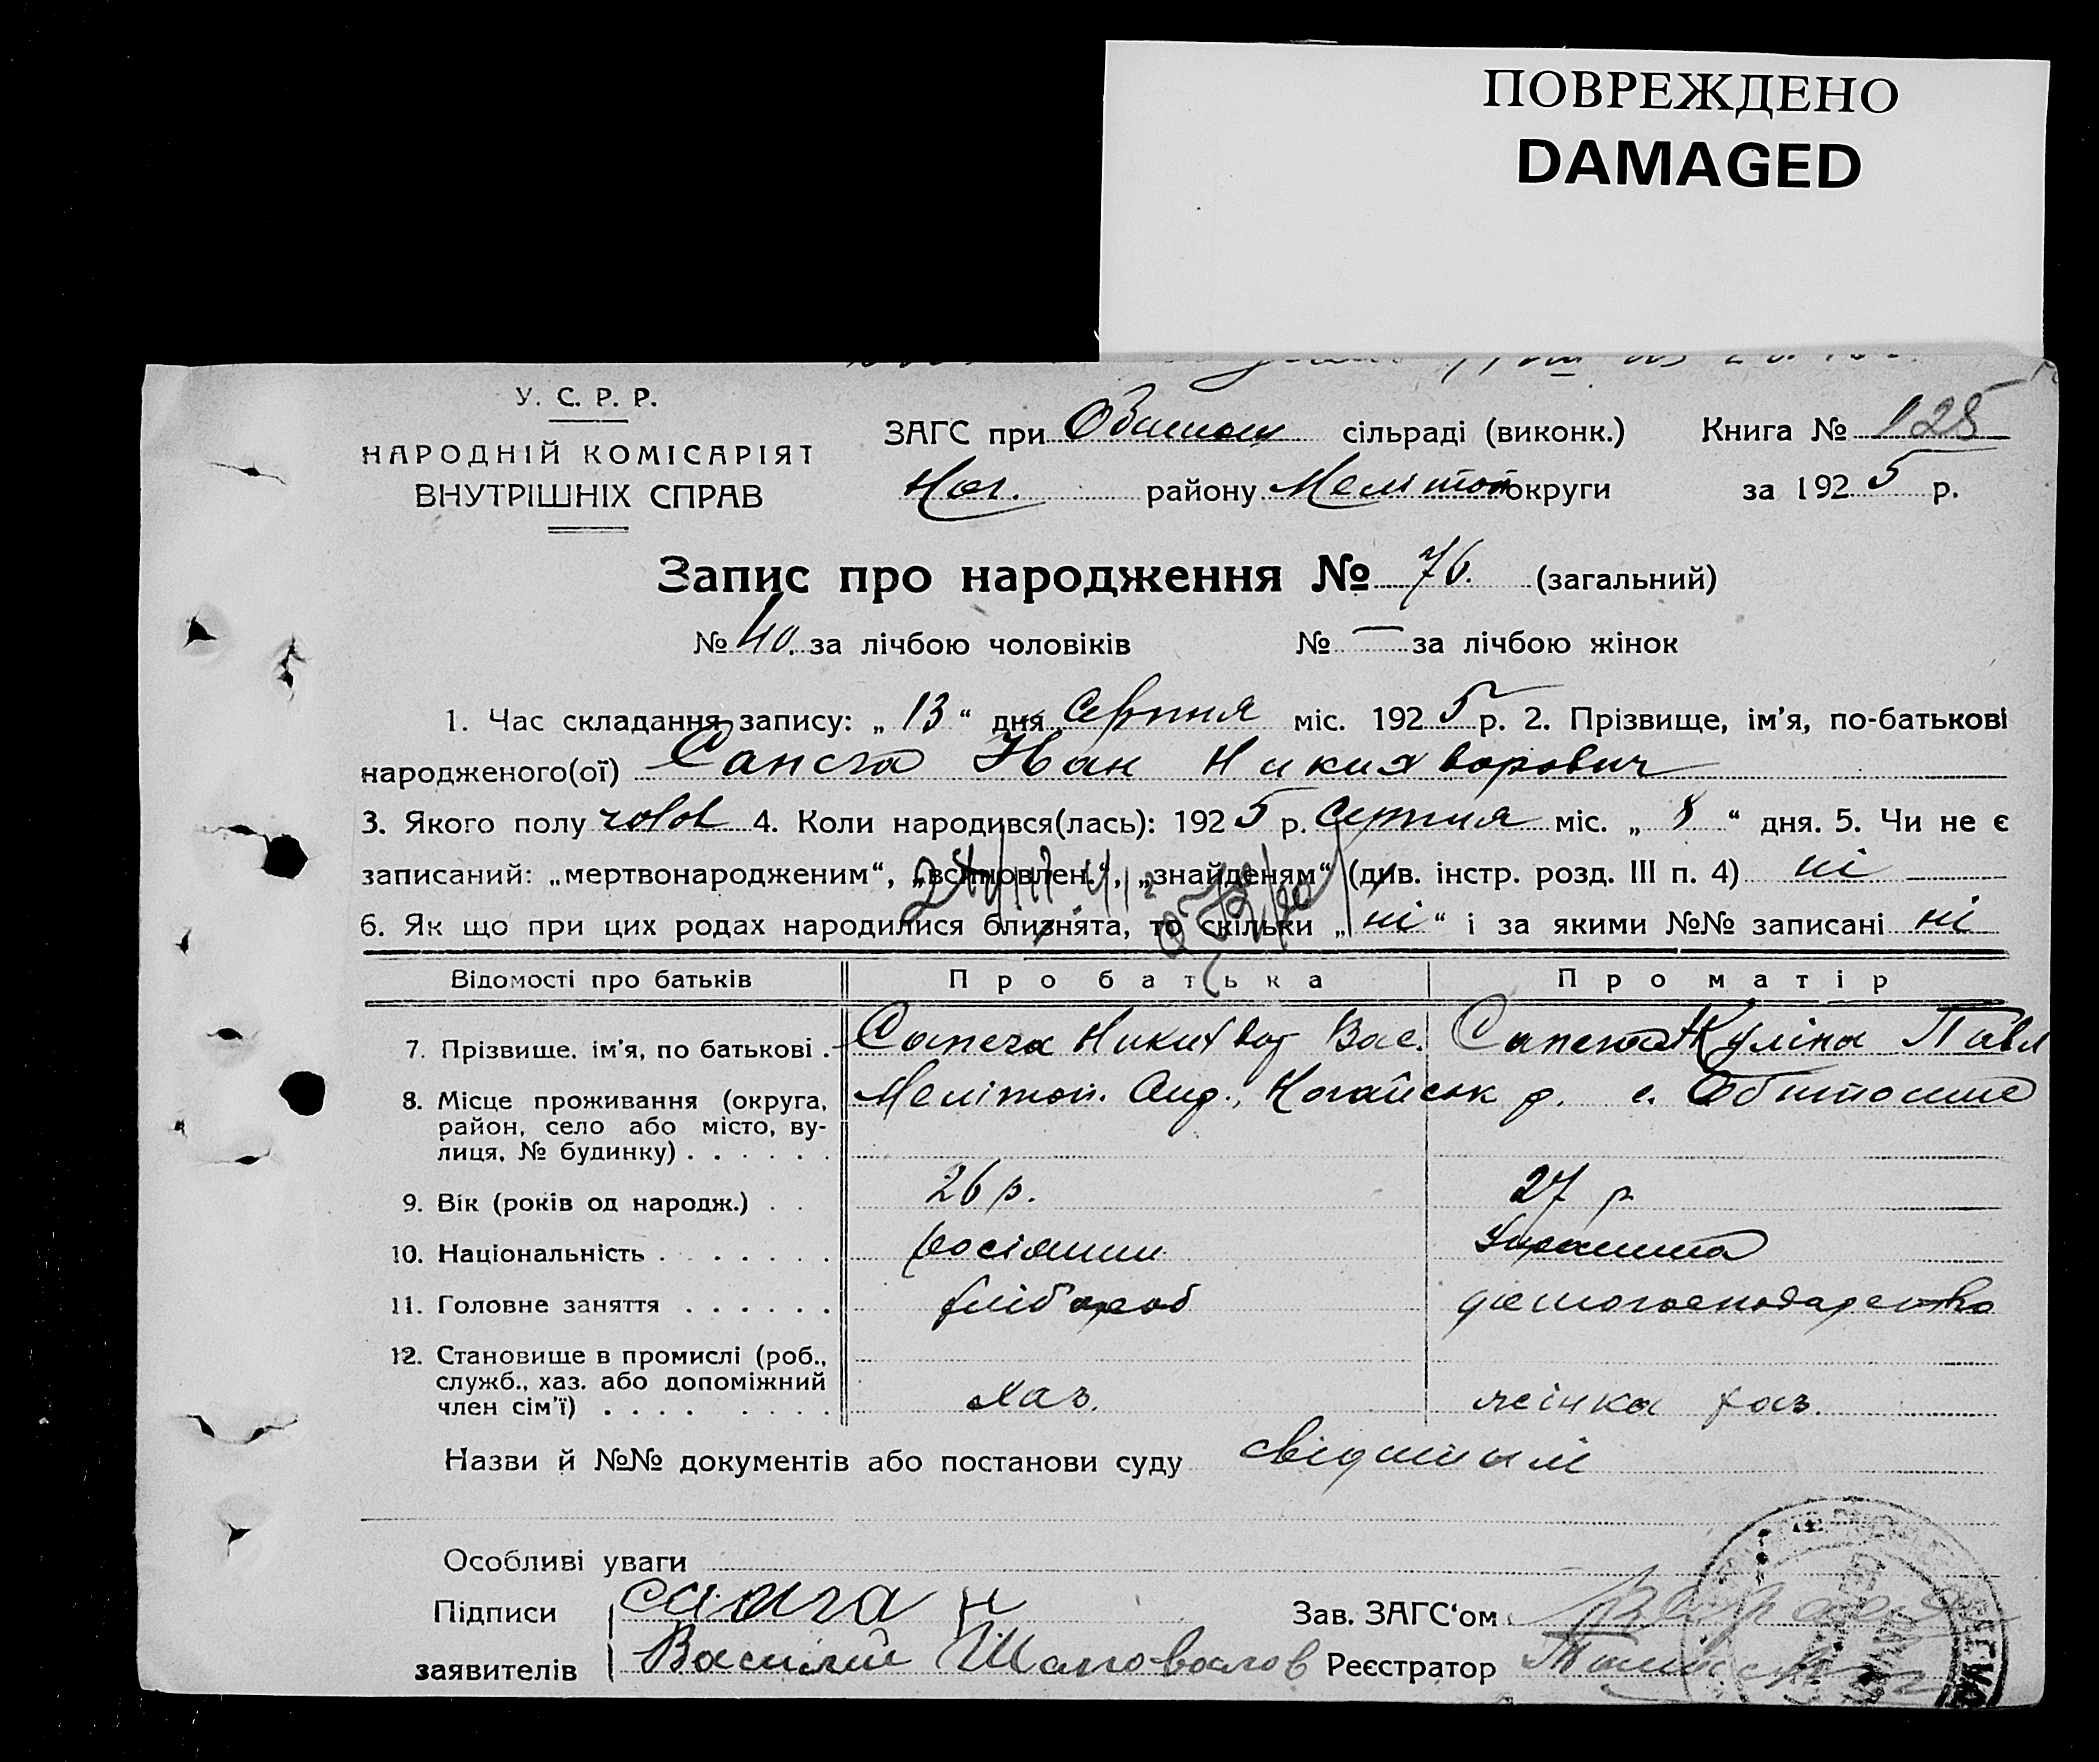 ПОВРЕЖДЕНО
DAMAGED
У. С. Р. Р.
НАРОДНІЙ КОМІСАРІЯТ
ВНУТРІШНІХ СПРАВ
ЗАГС при сільраді (виконк.) Книга № 125
Ног. району Мелітоп округи за 1925 р.
Запис про народження № 76. (загальний)
№ 40. за лічбою чоловіків № — за лічбою жінок
1. Час складання запису: „ 13 “ дня Серпня міс. 1925 р. 2. Прізвище, ім'я, по-батькові
народженого(ої) Сапсга Иван
3. Якого полу чолов 4. Коли народився(лась): 1925 р. Серпня міс. „ 8 “ дня. 5. Чи не є
записаний: „мертвонародженим“, „встановлен.“, „знайденям“ (див. інстр. розд. III п. 4) ні
6. Як що при цих родах народилися близнята, то скільки „ ні “ і за якими №№ записані ні
Відомості про батьків Про батька Про матір
7. Прізвище, ім'я, по батькові . Вас. Куліна Павл
8. Місце проживання (округа, район, село або місто, вулиця, № будинку) . . . . . . Мелітоп. Окр., Ногайськ р. с. Обиточне
9. Вік (років од народж.) . . 26 р. 27 р
10. Національність . . . . . . . росіянин Українка
11. Головне заняття . . . . . . хлібороб домогосподарство
12. Становище в промислі (роб., служб., хаз. або допоміжний член сім'ї) . . . . . . . . хаз. жінка хаз.
Назви й №№ документів або постанови суду
Особливі уваги
Підписи Зав. ЗАГС'ом
заявителів Василий Шаповалов Реєстратор